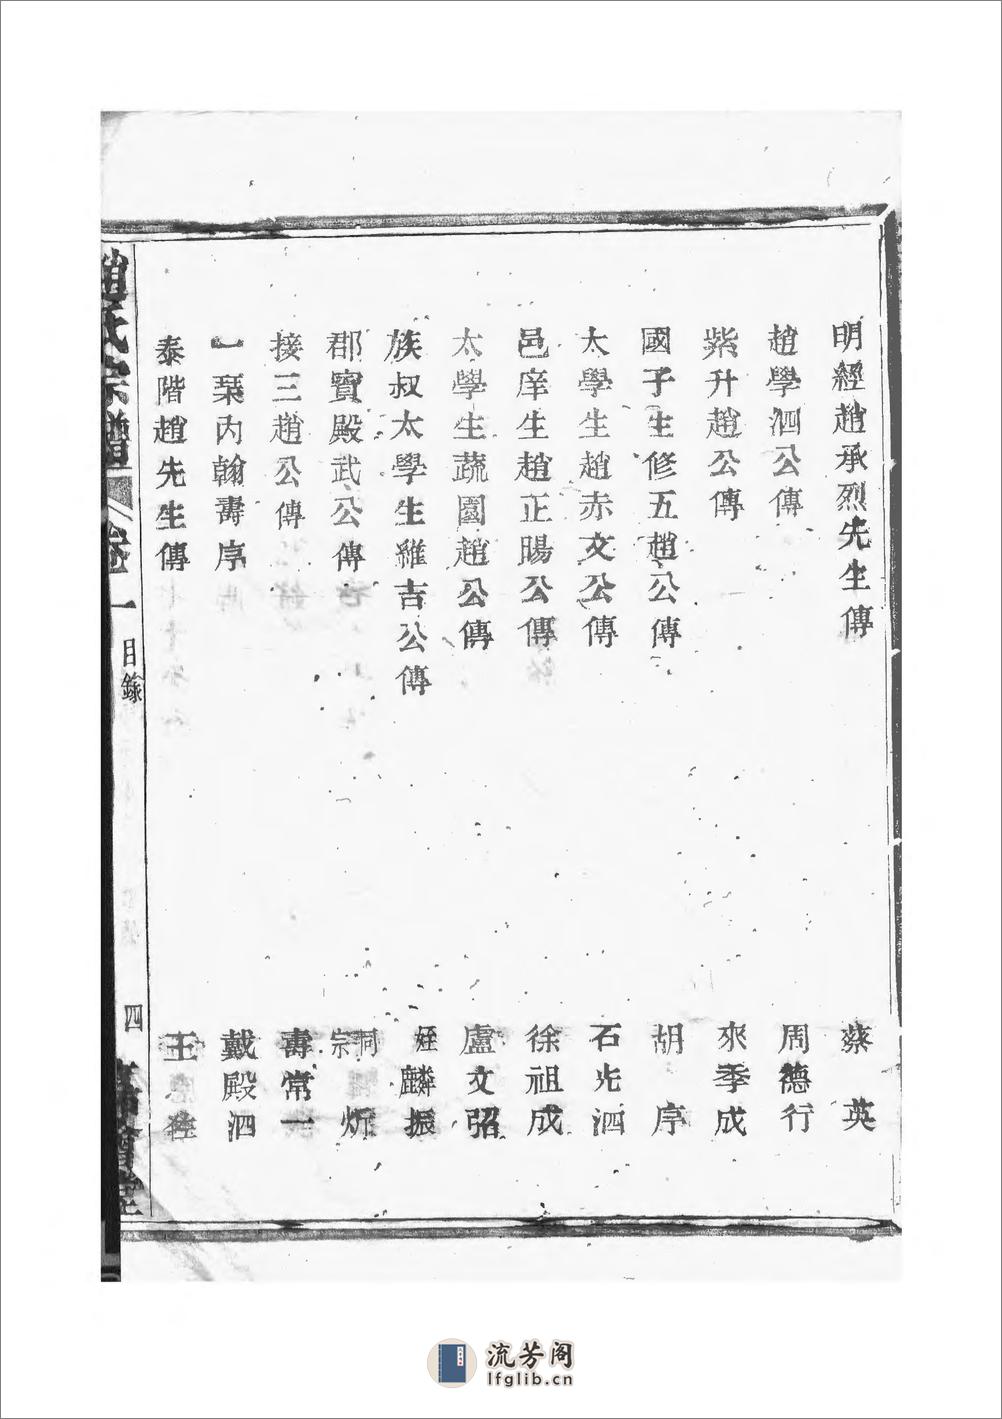 明經趙承烈先生傳 蔡英
趙學泗公傳 周德行
紫升趙公傳 來季成
國子生修五趙公傳 胡序
太學生趙赤文公傳 石光泗
邑庠生趙正暘公傳 徐祖成
太學生蔬園趙公傳 盧文弨
族叔太學生維吉公傳 姪麟振
郡賓殿武公傳 宗炘
接三趙公傳 壽常一
一琹內翰壽序 戴殿泗
泰階趙先生傳 王
趙氏宗譜 卷一 目錄 四
流芳阁
lfglib.cn